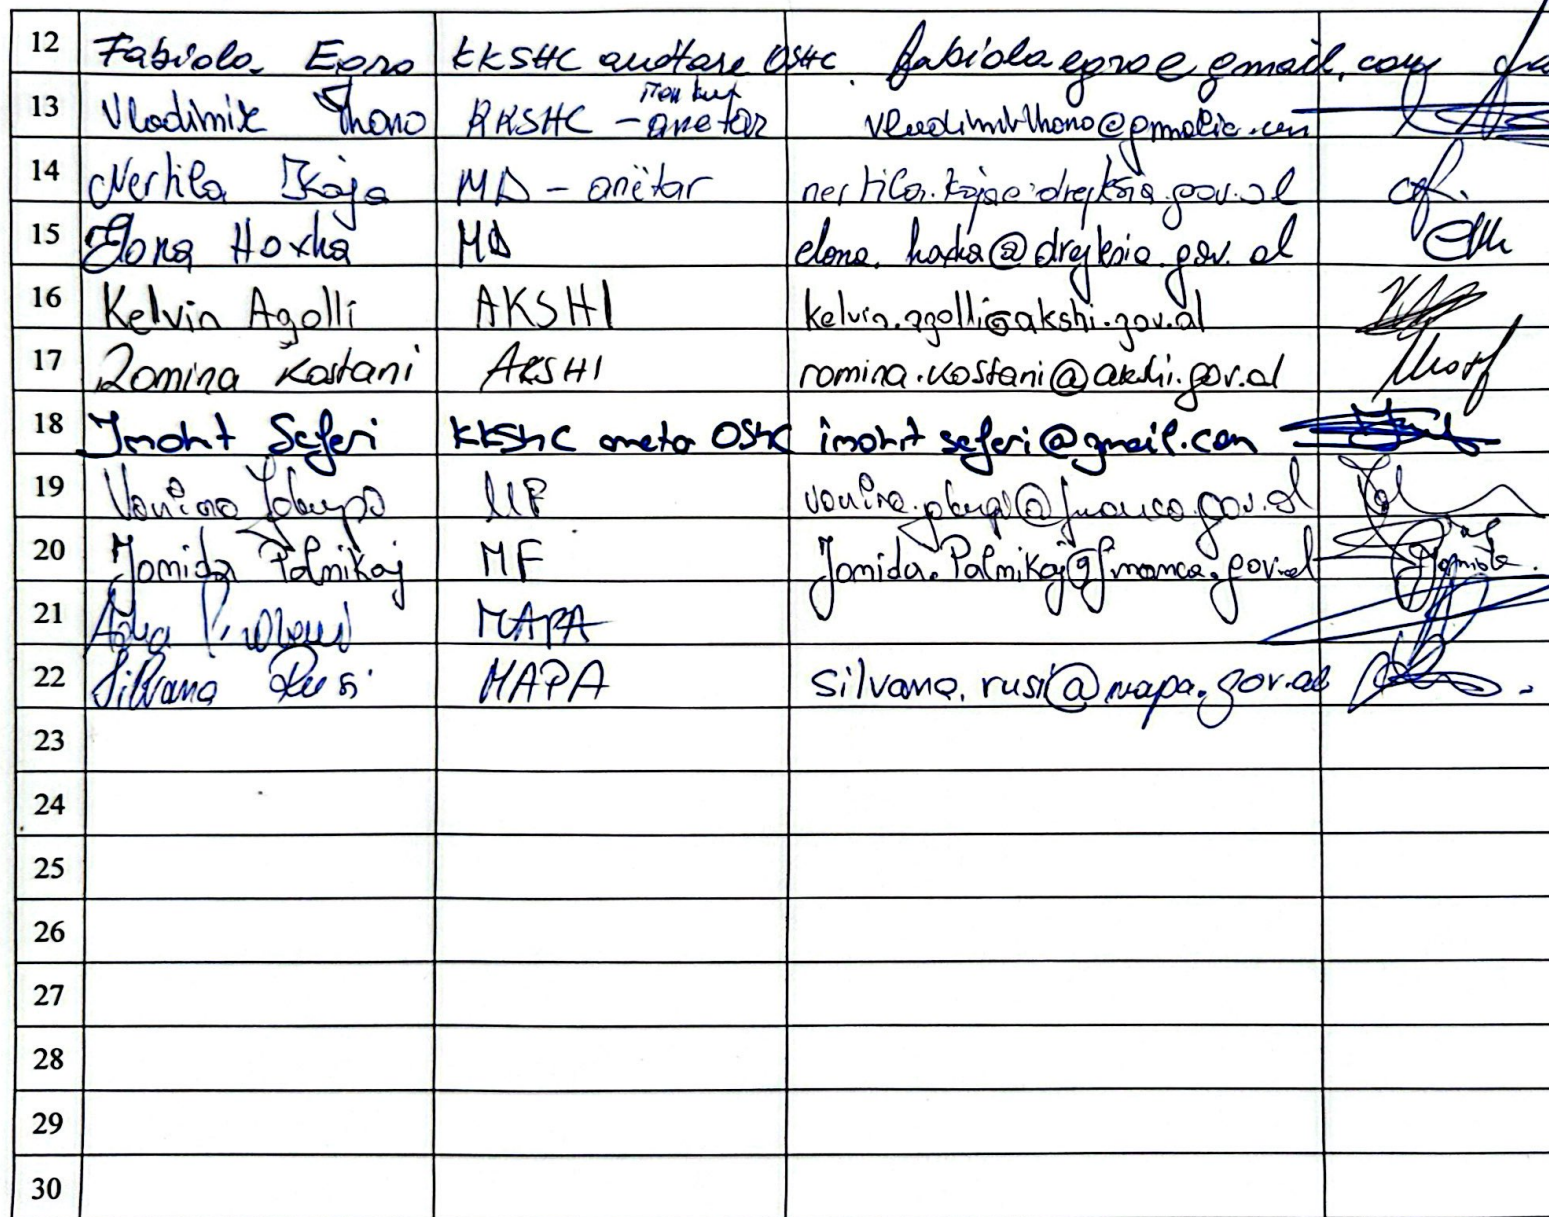 12 Fabiola Egro KKSHC anëtare OSHC fabiolaegro@gmail.com
13 Vladimir Thano KKSHC - anetar
14 Nertila Koja MD - anëtar nertila.koja@drejtesia.gov.al
15 Elona Hoxha MD elona.hoxha@drejtesia.gov.al
16 Kelvin Agolli AKSHI kelvin.agolli@akshi.gov.al
17 Romina Kostani AKSHI romina.kostani@akshi.gov.al
18 Imohit Seferi KKSHC aneta OSHC imohit seferi@gmail.com
19 MF
20 Jomida Palmikaj MF Jomida.Palmikaj@financa.gov.al
21 MAPA
22 Silvana Rusi MAPA silvana.rusi@mapa.gov.al
23
24
25
26
27
28
29
30